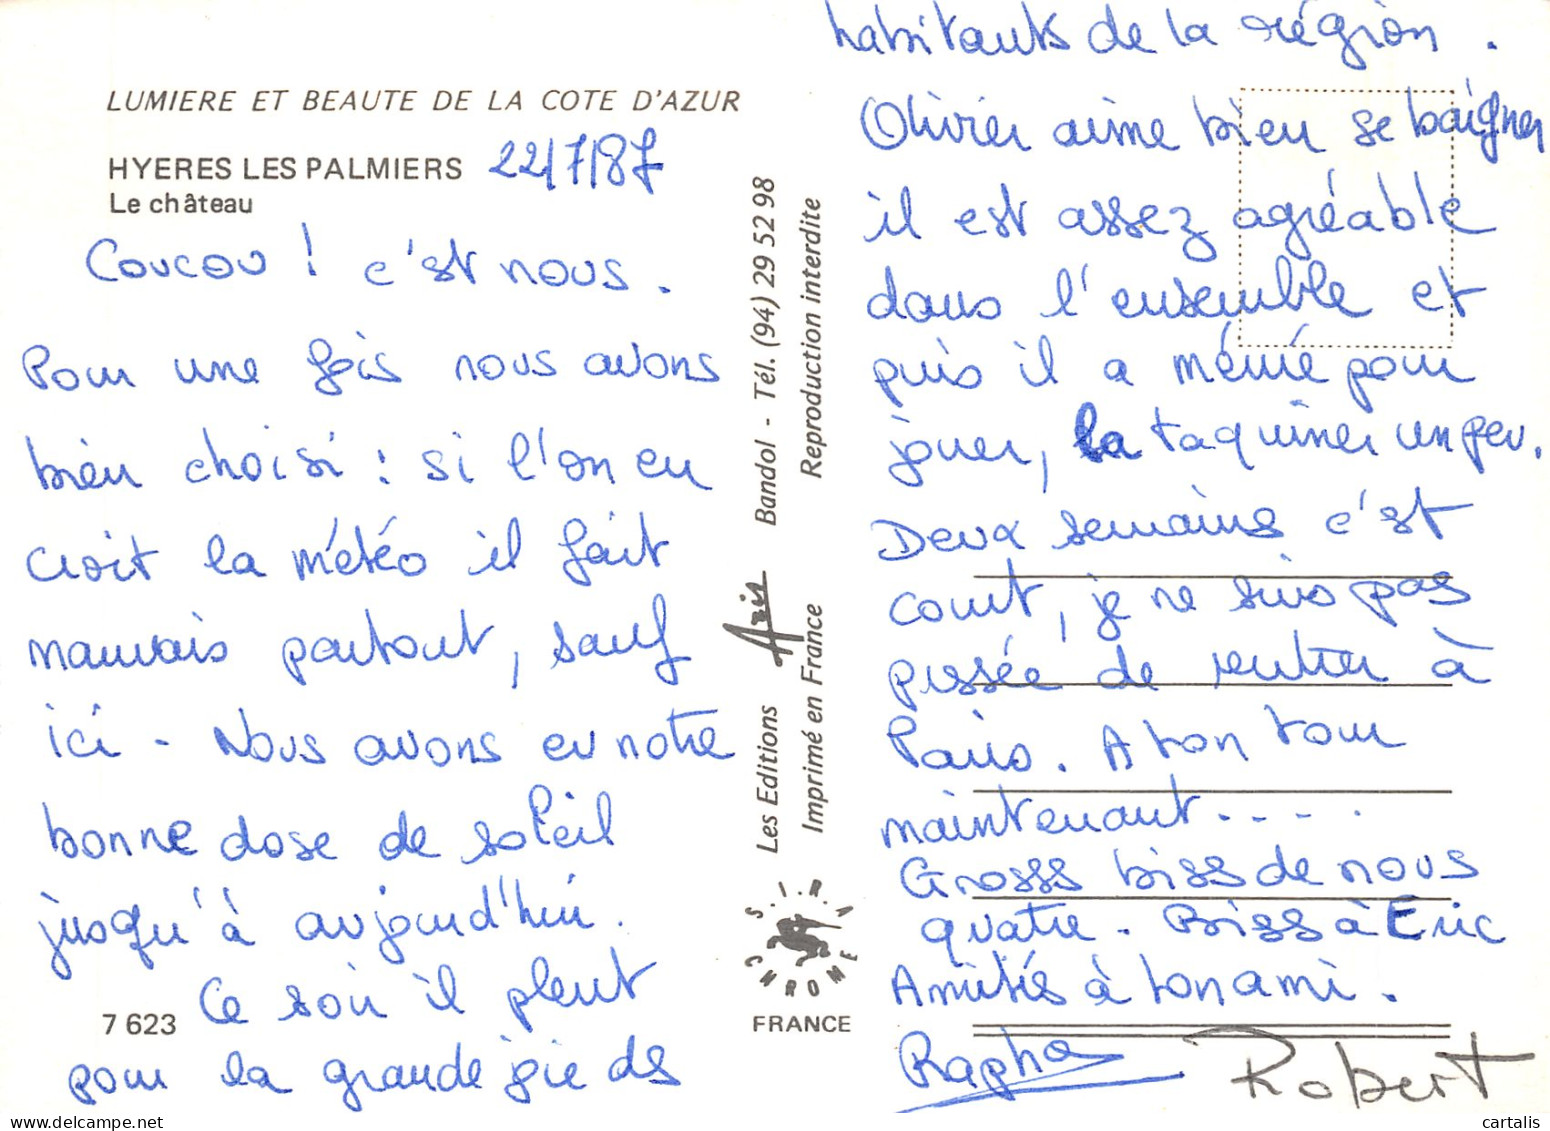 LUMIERE ET BEAUTE DE LA COTE D'AZUR
HYERES LES PALMIERS 22/7/87
Le château
Coucou ! c'est nous.
Pour une fois nous avons
bien choisi : si l'on en
croit la météo il fait
mauvais partout, sauf
ici - Nous avons eu notre
bonne dose de soleil
jusqu'à aujourd'hui.
Ce soir il pleut
pour la grande joie des
7 623
Les Editions Aris Bandol - Tél. (94) 29 52 98
Imprimé en France Reproduction interdite
S.I.R.A
CHROME
FRANCE
habitants de la région.
Olivier aime bien se baigner
il est assez agréable
dans l'ensemble et
puis il a mémé pour
jouer, la taquiner un peu.
Deux semaines c'est
court, je ne suis pas
pressée de rentrer à
Paris. A ton tour
maintenant....
Grosss biss de nous
quatre. Biss à Eric
Amitiés à ton ami.
Rapha Robert
cartalis
https://www.delcampe.net